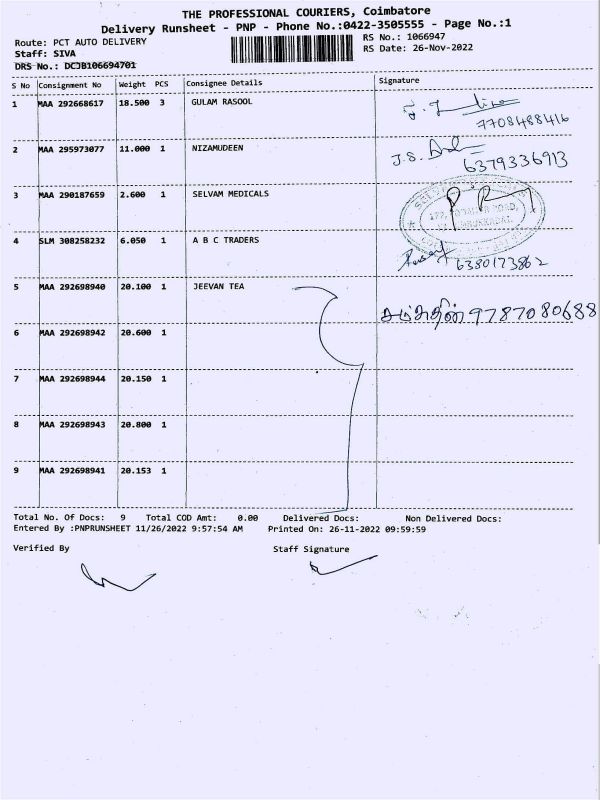 THE PROFESSIONAL COURIERS, Coimbatore
Delivery Runsheet - PNP - Phone No.:0422-3505555 - Page No.:1
Route: PCT AUTO DELIVERY
RS No.: 1066947
Staff: SIVA
RS Date: 26-Nov-2022
DRS No.: DCJB106694701
S No Consignment No Weight PCS Consignee Details Signature
1 MAA 292668617 18.500 3 GULAM RASOOL
7708488416
2 MAA 295973077 11.000 1 NIZAMUDEEN J.S.
6379336913
3 MAA 290187659 2.600 1 SELVAM MEDICALS
4 SLM 308258232 6.050 1 A B C TRADERS
6380173862
5 MAA 292698940 20.100 1 JEEVAN TEA
9787080688
6 MAA 292698942 20.600 1
7 MAA 292698944 20.150 1
8 MAA 292698943 20.800 1
9 MAA 292698941 20.153 1
Total No. Of Docs: 9 Total COD Amt: 0.00 Delivered Docs: Non Delivered Docs:
Entered By :PNPRUNSHEET 11/26/2022 9:57:54 AM Printed On: 26-11-2022 09:59:59
Verified By Staff Signature